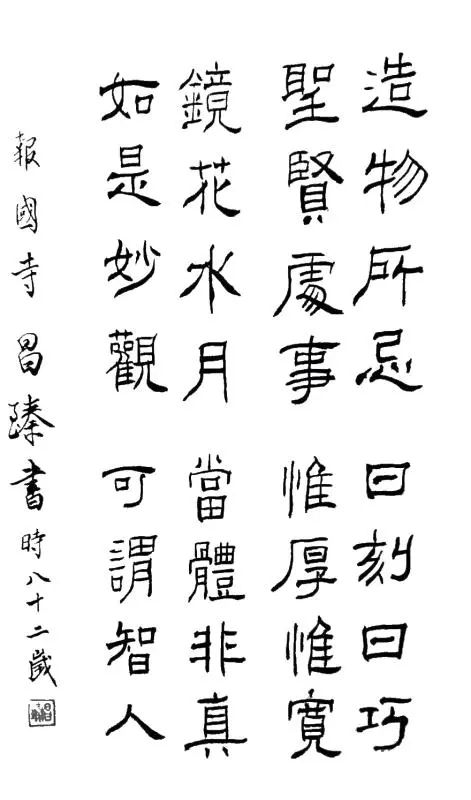 造物所忌 曰刻曰巧
聖賢處事 惟厚惟寬
鏡花水月 當體非真
如是妙觀 可謂智人
報國寺 昌臻書 時八十二歲